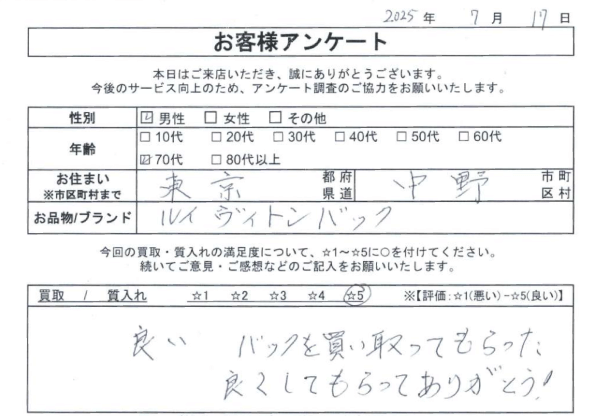 2025 年 7 月 17 日
お客様アンケート
本日はご来店いただき、誠にありがとうございます。
今後のサービス向上のため、アンケート調査のご協力をお願いいたします。
性別 ☑ 男性 □ 女性 □ その他
年齢 □ 10代 □ 20代 □ 30代 □ 40代 □ 50代 □ 60代
☑ 70代 □ 80代以上
お住まい ※市区町村まで 東京 都府県道 中野 市町区村
お品物/ブランド ルイ ヴィトンバック
今回の買取・質入れの満足度について、☆1～☆5に○を付けてください。
続いてご意見・ご感想などのご記入をお願いいたします。
買取 / 質入れ ☆1 ☆2 ☆3 ☆4 ☆5 ※【評価：☆1(悪い)－☆5(良い)】
良い バックを買い取ってもらった
良くしてもらってありがとう!